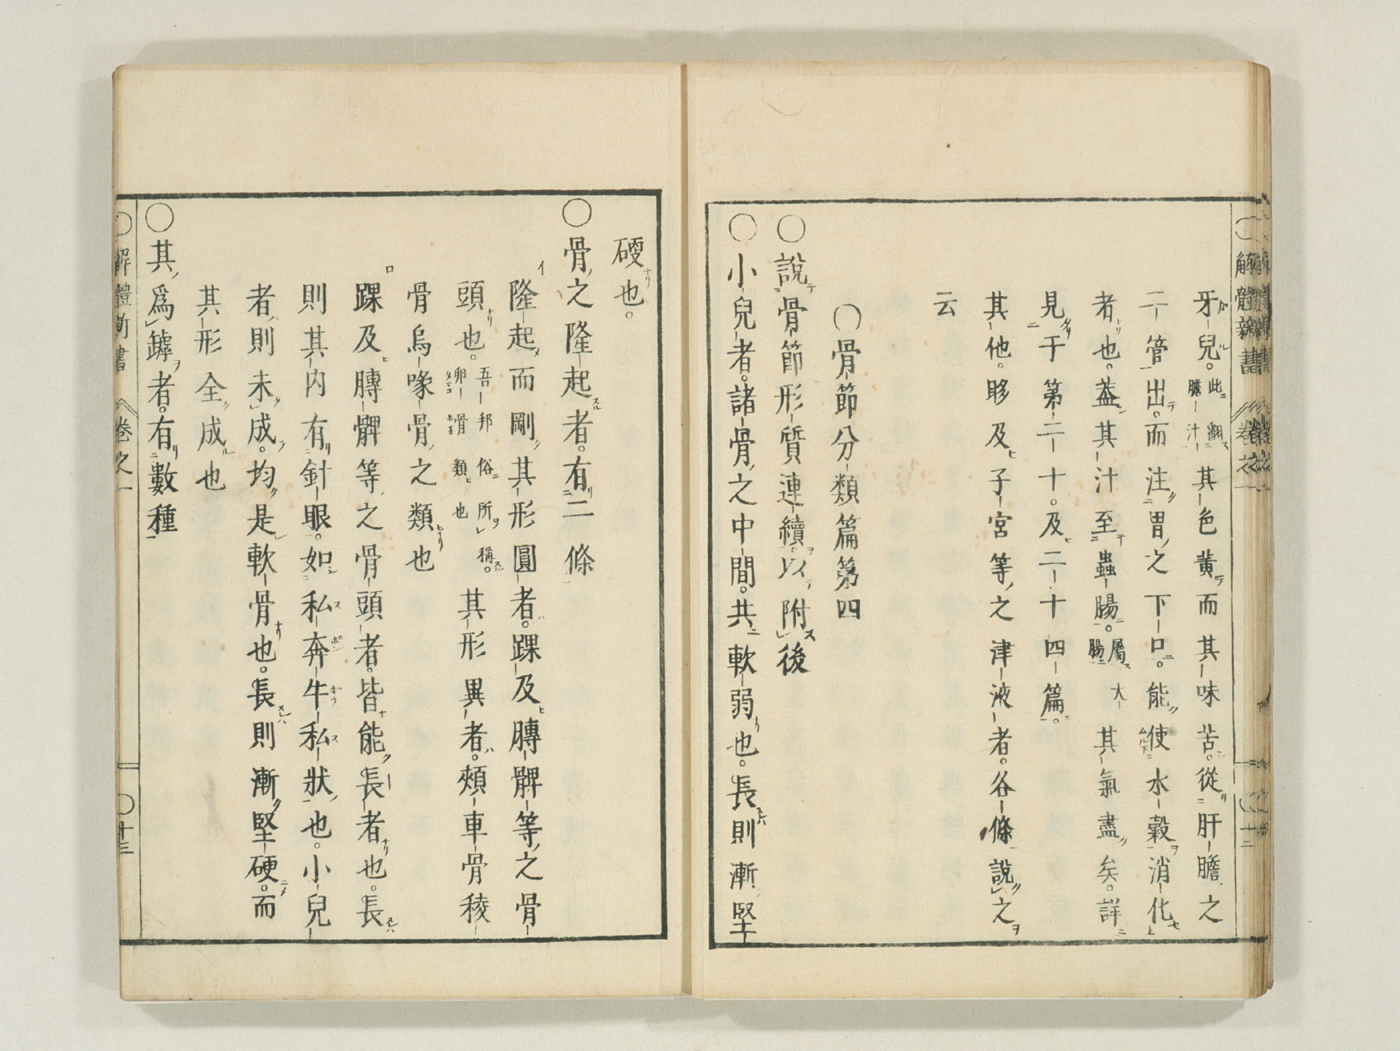 牙兒。此飜膽汁其色黄而其味苦。從肝膽之
二管出。而注胃之下口。能使水穀消化
者也。蓋其汁至蟲腸。屬大腸其氣盡矣。詳
見于第二十。及二十四篇。
其他。眵及子宮等之津液者。各條說之
云
〇骨節分類篇第四
〇說骨節形質連續。以附後
〇小兒者。諸骨之中間。共軟弱也。長則漸堅
硬也。
〇骨之隆起者。有二條
隆起而剛。其形圓者。踝及膊髀等之骨
頭也。吾邦俗所稱。卵骨類也其形異者。頰車骨稜
骨烏喙骨之類也
踝及膊髀等之骨頭者。皆能長者也。長
則其内有針眼。如私奔牛私狀也。小兒
者則未成。均是軟骨也。長則漸堅硬。而
其形全成也
〇其爲罅者。有數種
〇解體新書 卷之一 〇十三
〇解體新書 卷之一 〇十二